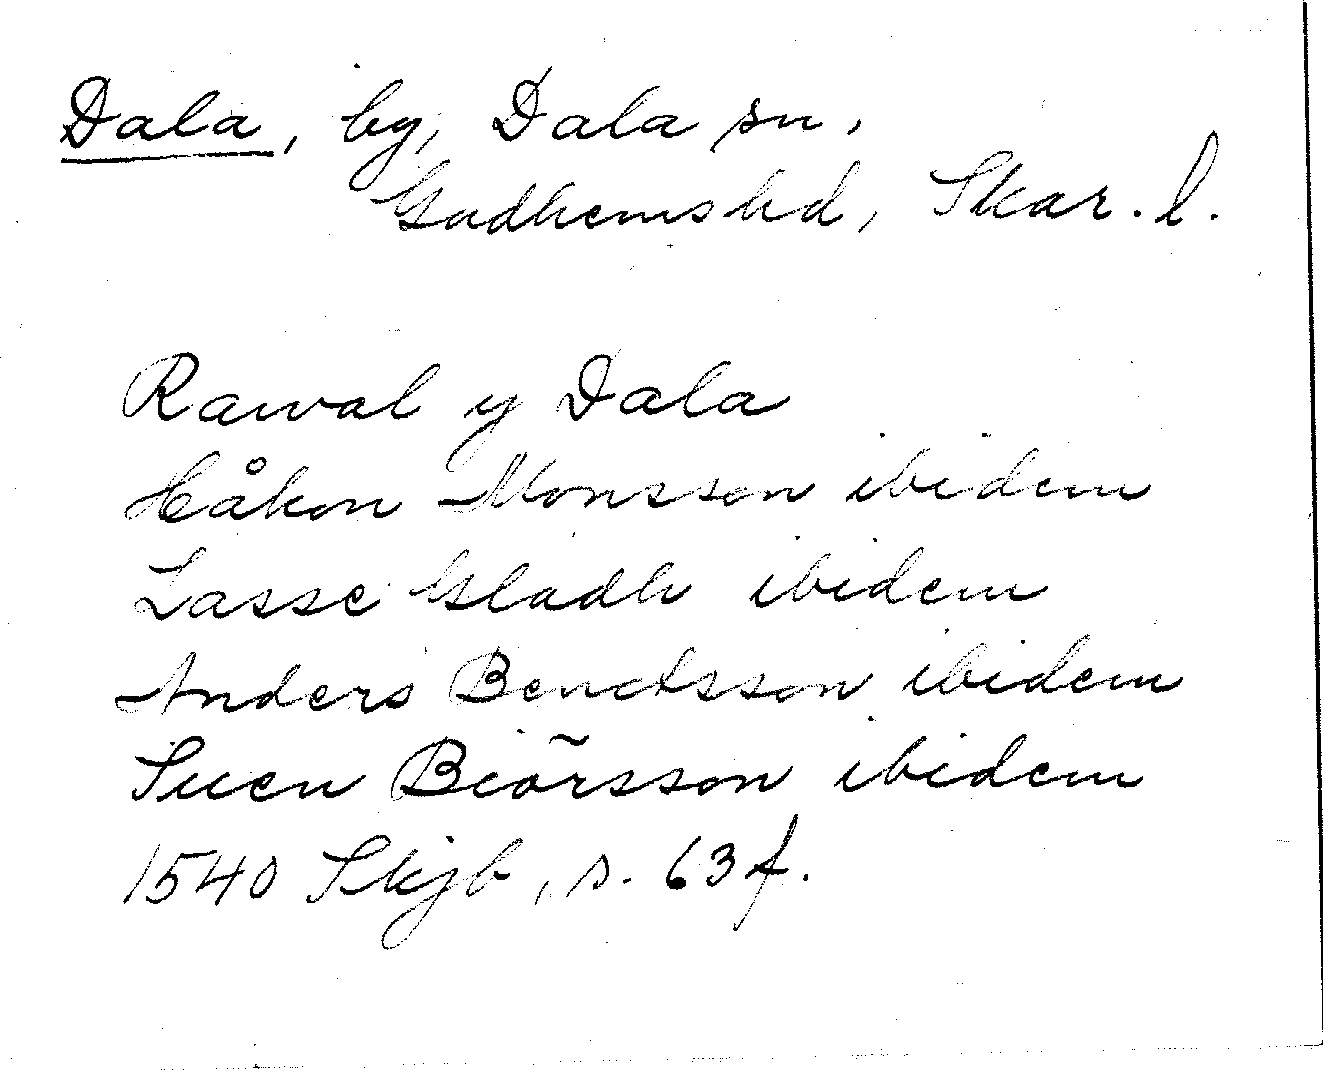 Dala, by, Dala sn,
Gudhems hd, Skar. l.
Rawal y Dala
Håkon Monsson ibidem
Lasse Gladh ibidem
Anders Benctsson ibidem
Suen Biõrsson ibidem
1540 Skjb, s. 63f.